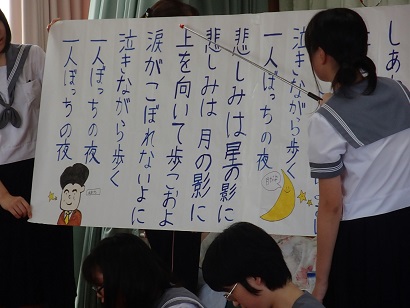 しあ
泣きながら歩く
一人ぼっちの夜
悲しみは星の影に
悲しみは月の影に
上を向いて歩こおよ
涙がこぼれないよに
泣きながら歩く
一人ぼっちの夜
一人ぼっちの夜